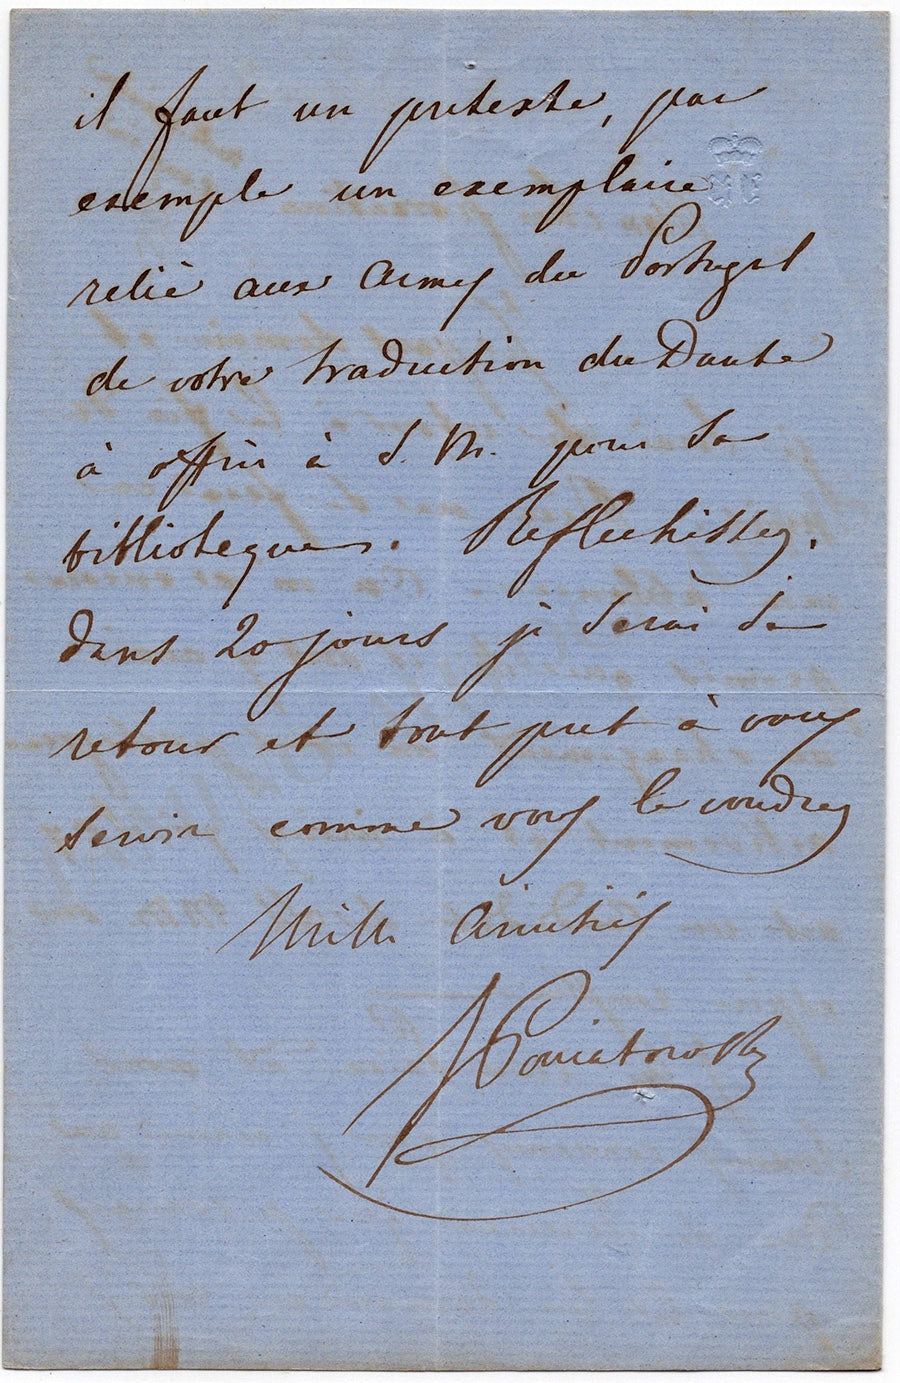 il faut un pretexte, par
exemple un exemplaire
relié aux armes du Portugal
de votre traduction du Dante
à offrir à S. M. pour sa
biblioteque. Reflechissez.
dans 20 jours je serai de
retour et tout pret à vous
servir comme vous le voudrez
Mille amitiés
J Poniatowski